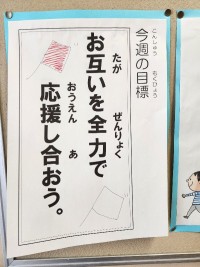 今週の目標
こんしゅう もくひょう
お互いを全力で
たが ぜんりょく
応援し合おう。
おうえん あ